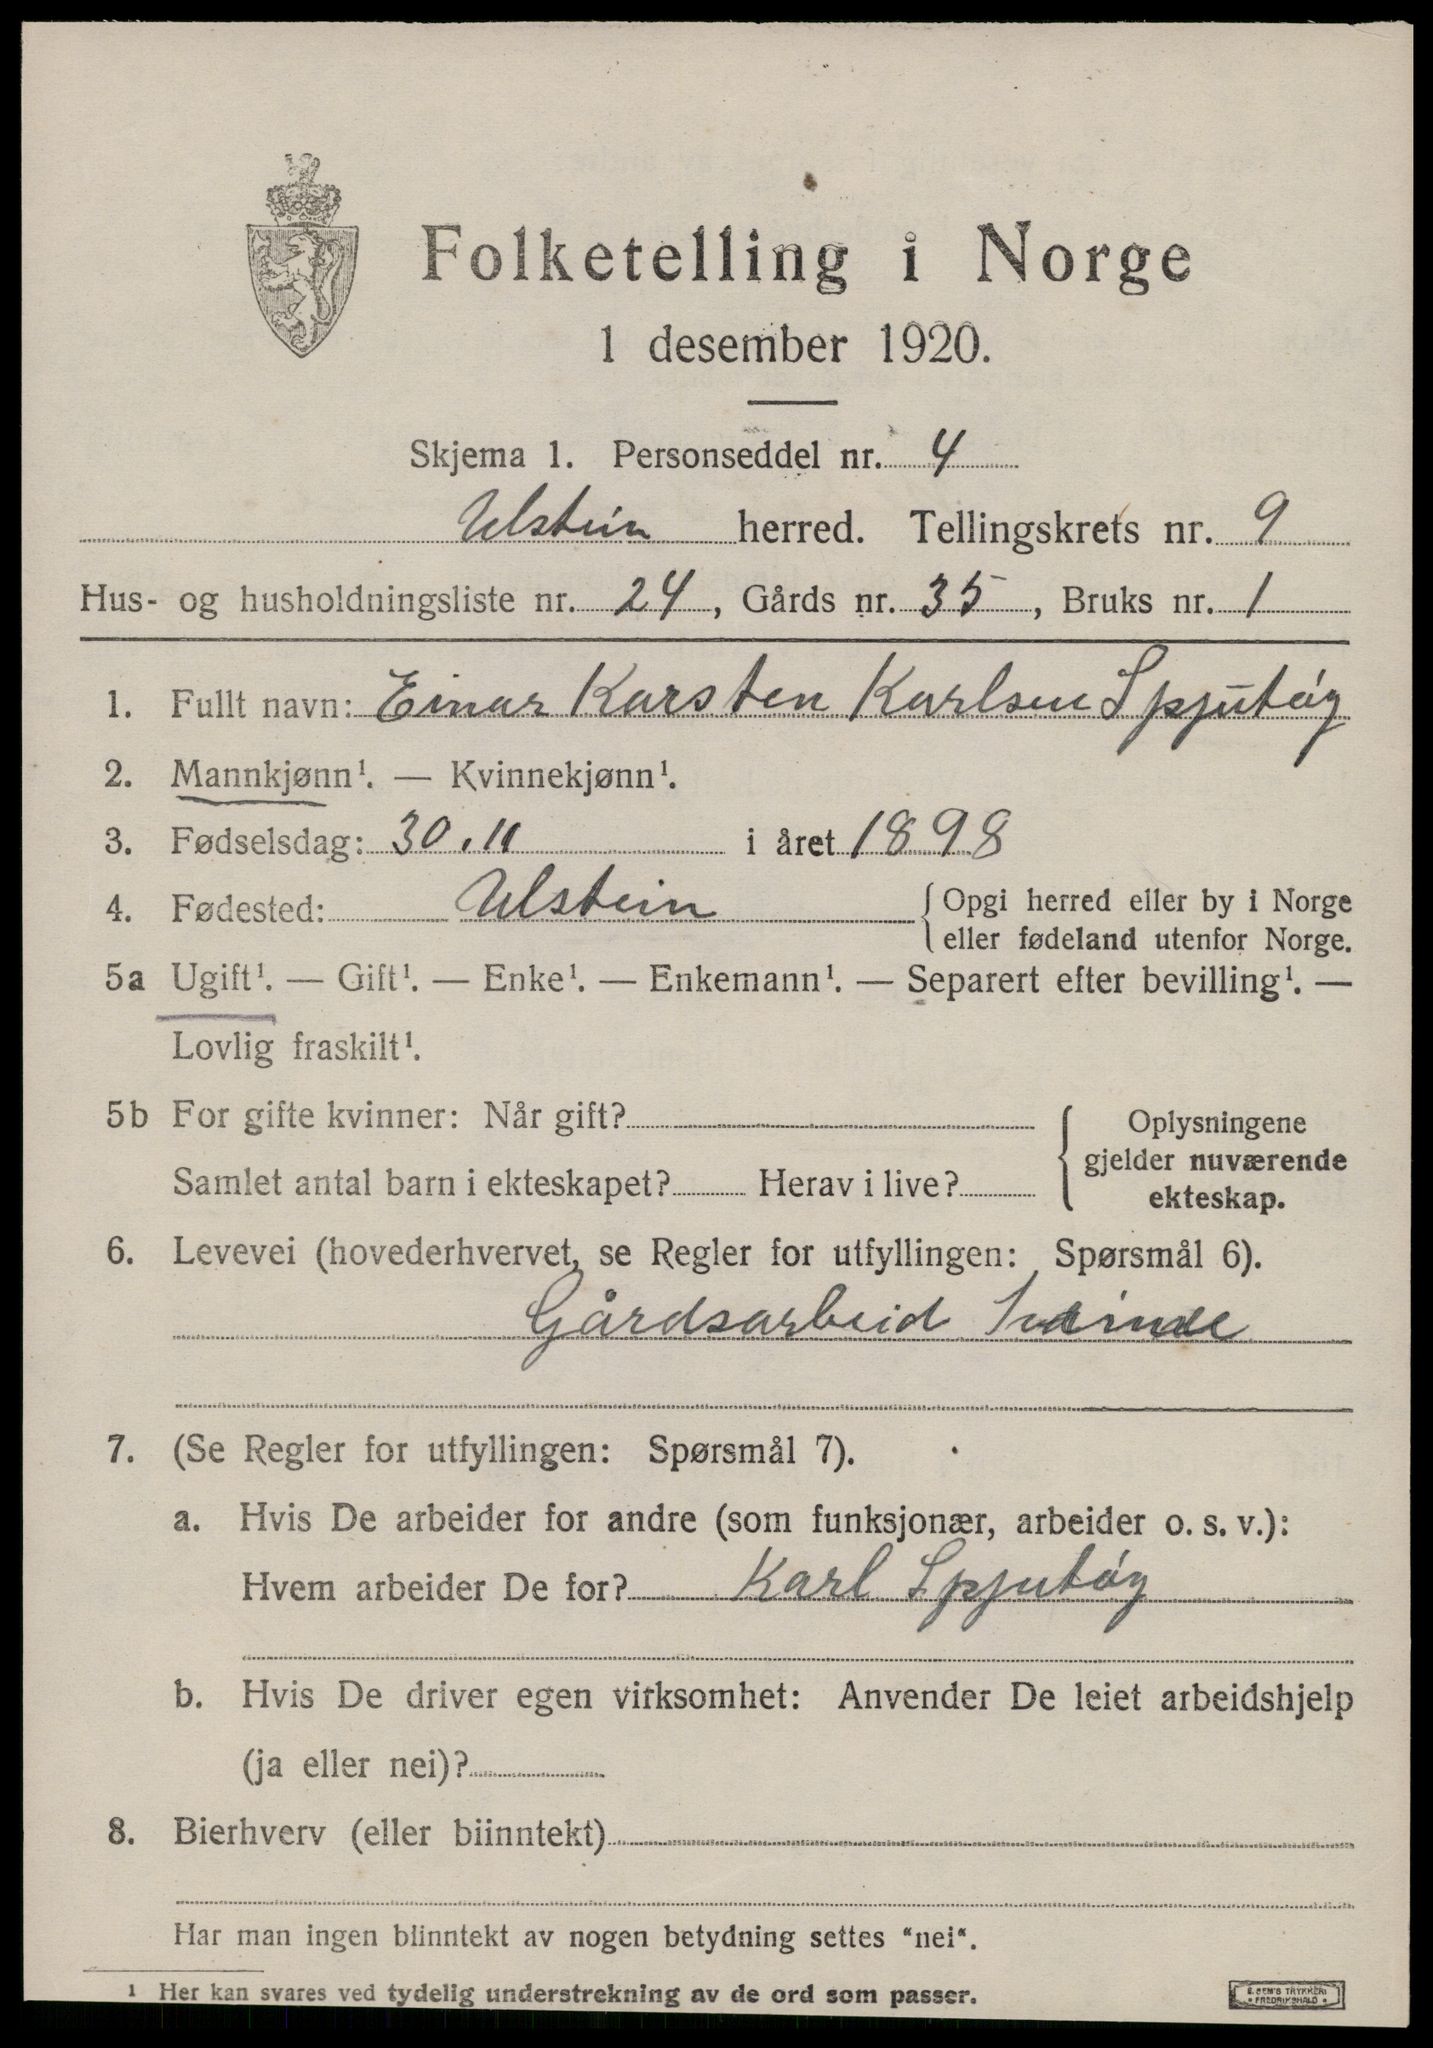 Folketelling i Norge
1 desember 1920.
Skjema 1. Personseddel nr. 4
Ulstein herred. Tellingskrets nr. 9
Hus- og husholdningsliste nr. 24, Gårds nr. 35, Bruks nr. 1
1. Fullt navn: Einar Karsten Karlsen Spjutøy
2. Mannkjønn¹. — Kvinnekjønn¹.
3. Fødselsdag: 30.11 i året 1898
4. Fødested: Ulstein { Opgi herred eller by i Norge
eller fødeland utenfor Norge.
5a Ugift¹. — Gift¹. — Enke¹. — Enkemann¹. — Separert efter bevilling¹. —
Lovlig fraskilt¹.
5b For gifte kvinner: Når gift?
Samlet antal barn i ekteskapet? Herav i live?
{ Oplysningene
gjelder nuværende
ekteskap.
6. Levevei (hovederhvervet, se Regler for utfyllingen: Spørsmål 6).
Gårdsarbeid
7. (Se Regler for utfyllingen: Spørsmål 7).
a. Hvis De arbeider for andre (som funksjonær, arbeider o. s. v.):
Hvem arbeider De for? Karl Spjutøy
b. Hvis De driver egen virksomhet: Anvender De leiet arbeidshjelp
(ja eller nei)?
8. Bierhverv (eller biinntekt)
Har man ingen biinntekt av nogen betydning settes "nei".
¹ Her kan svares ved tydelig understrekning av de ord som passer.
E. SEM'S TRYKKERI
• FREDRIKSHALD •